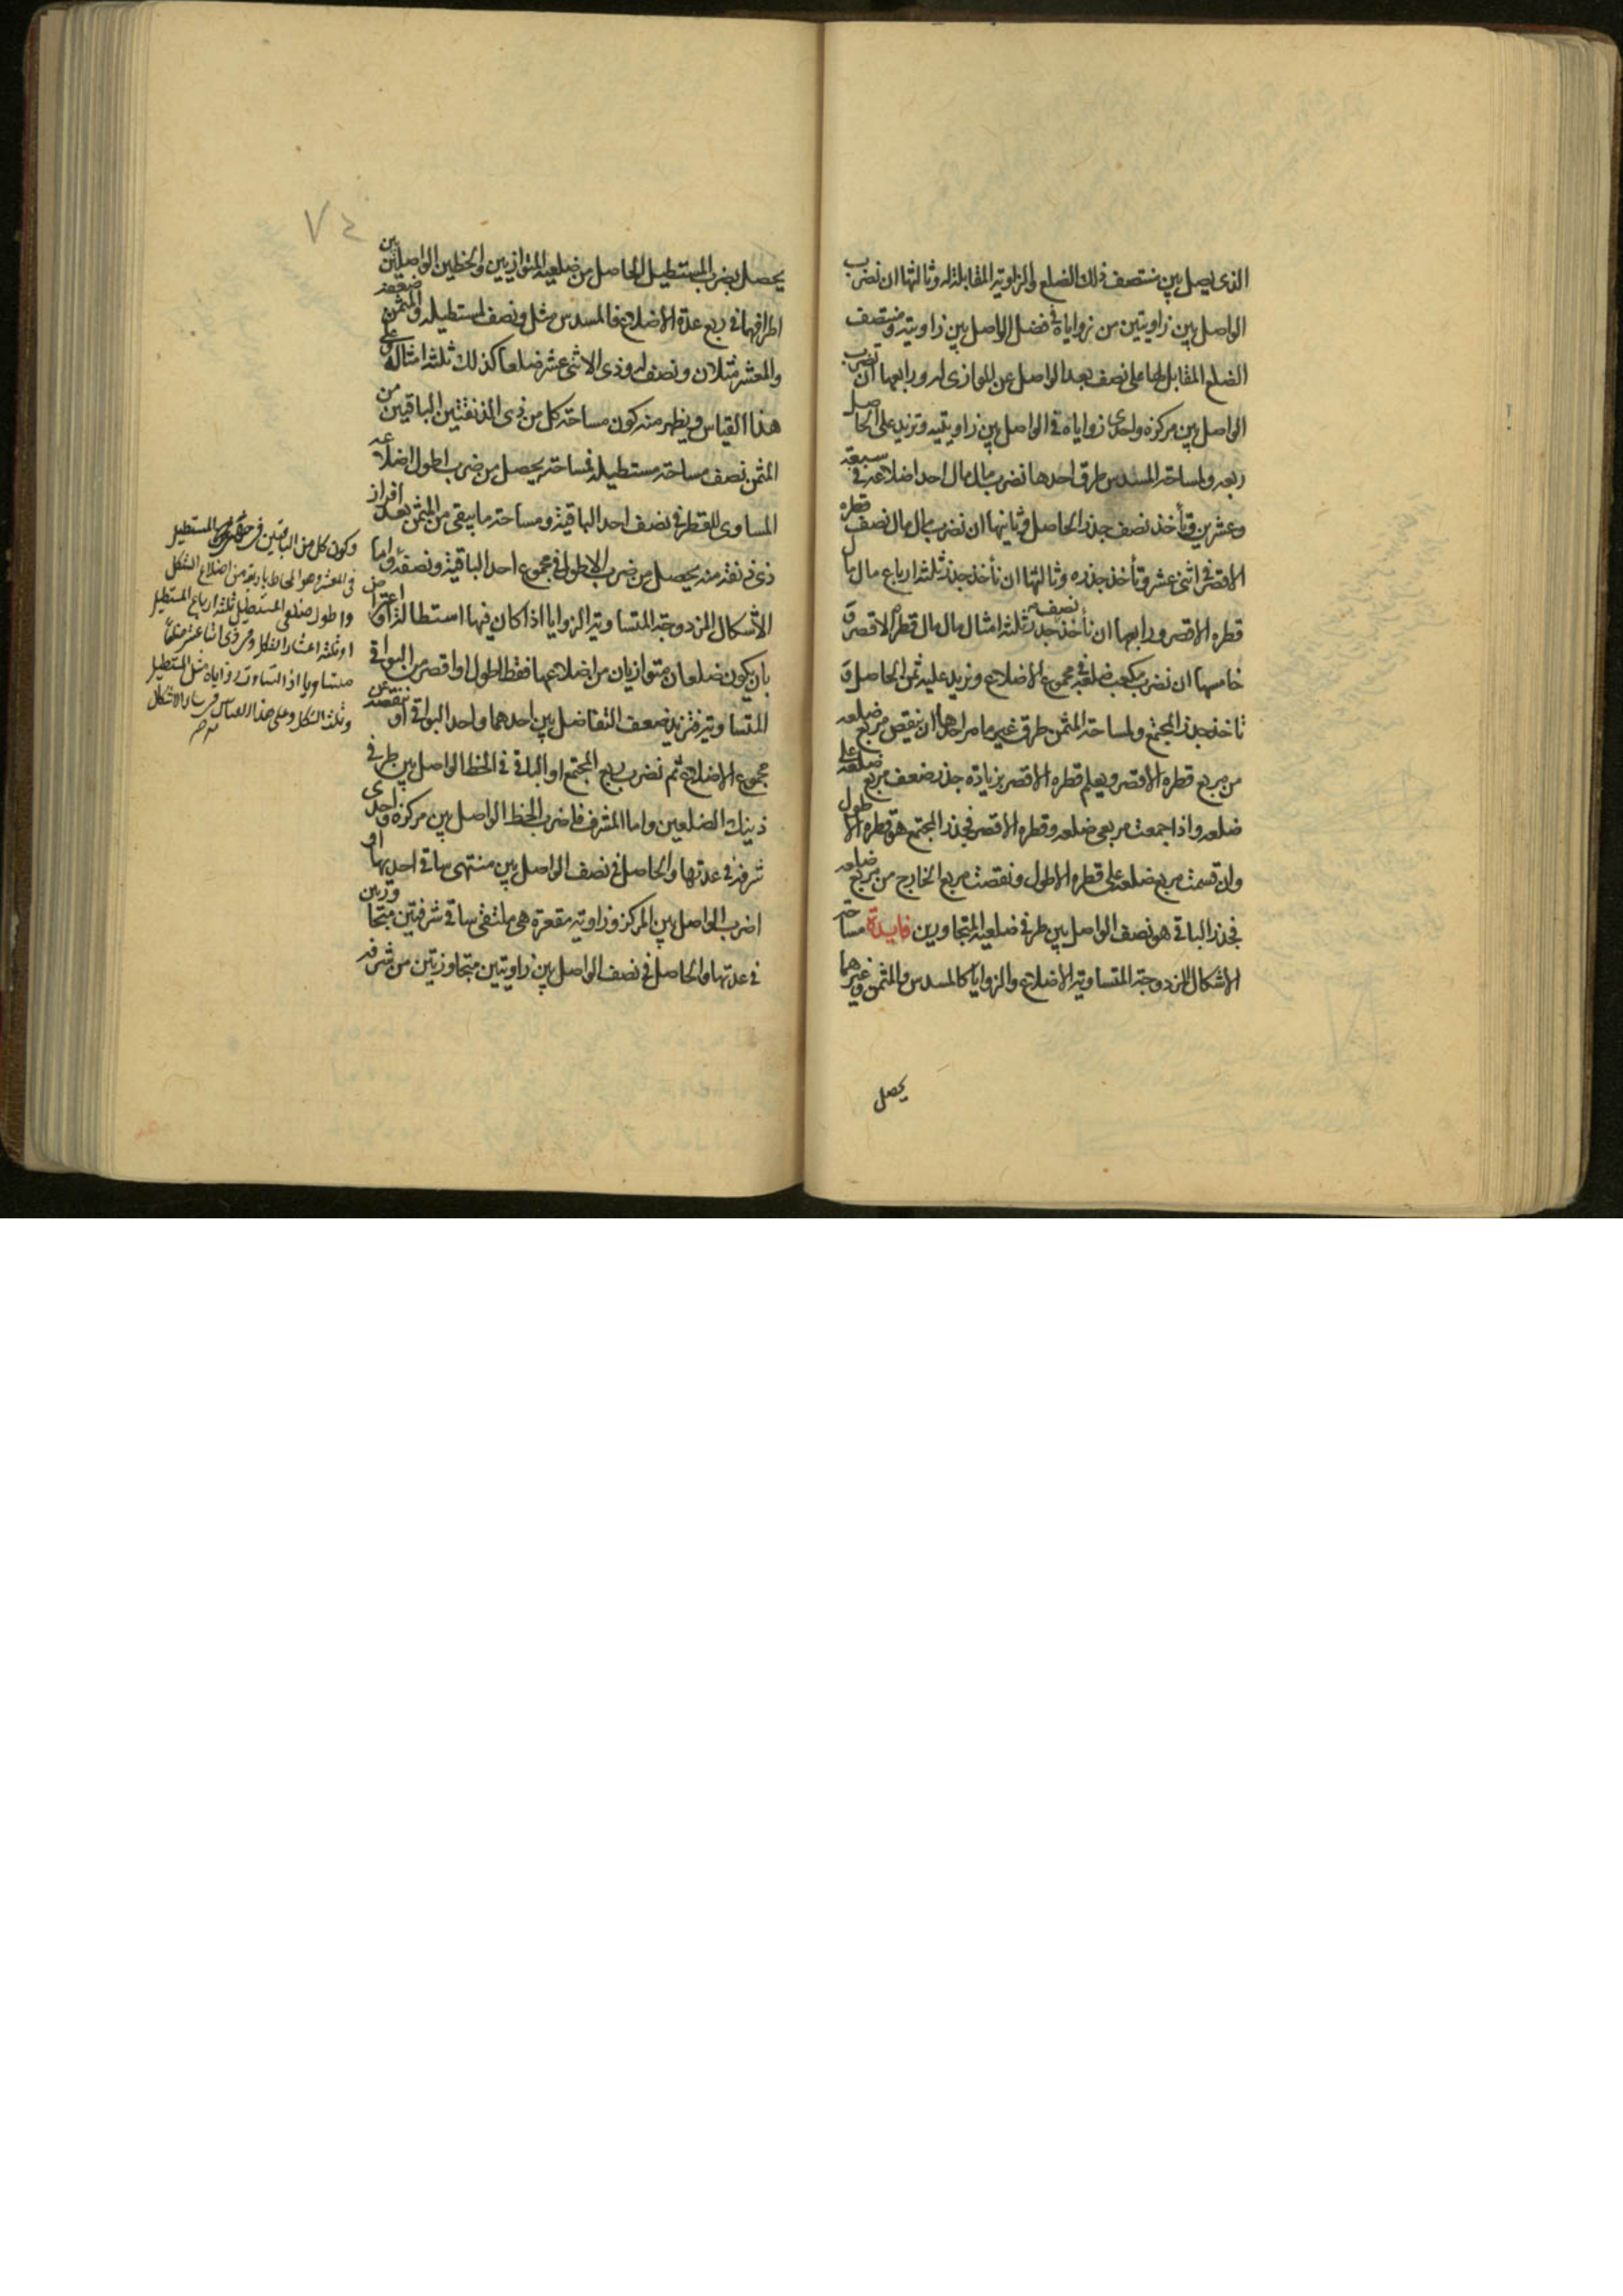 الذى يصل بين منتصف ذلك الضلع والزاوية المقابلة له وثالثها ان نضرب
الواصل بين زاويتين من زواياه فى فضل الواصل بين زاويته ومنتصف
الضلع المقابل لها على نصف بعد الواصل عن الموازى له ورابعها ان نضرب
الواصل بين مركزه واحدى زواياه فى الواصل بين زاويتيه ونزيد على الحاصل
ربعه ولمساحة المسدس طرق احدها نضرب مال مال احد اضلاعه فى سبعة
وعشرين وتأخذ نصف جذر الحاصل وثانيها ان نضرب مال مال نصف قطره
الاقصر فى اثنى عشر وتأخذ جذره وثالثها ان نأخذ جذر ثلثة ارباع مال مال
قطره الاقصر ورابعها ان نأخذ نصف جذر ثلثة امثال مال مال قطره الاقصر و
خامسها ان نضرب مكعب ضلعه فى مجموع الاضلاع ونزيد عليه ثمن الحاصل و
تاخذ جذر المجتمع ولمساحة المثمن طرق غير ما مر احدها ان ينقص مربع ضلعه
من مربع قطره الاقصر ويعلم قطره الاقصر بزيادة جذر ضعف مربع ضلعه على
ضلعه واذا جمعت مربعى ضلعه وقطره الاقصر فجذر المجتمع هو قطره الاطول
وان قسمت مربع ضلعه على قطره الاطول ونقصت مربع الخارج من مربع ضلعه
فجذر الباقى هو نصف الواصل بين طرفى ضلعيه المتجاورين فايدة مساحة
الاشكال المزدوجة المتساوية الاضلاع والزوايا كالمسدس والمثمن وغيرهما
يحصل
٧٤
يحصل بضرب المستطيل الحاصل من ضلعيه المتوازيين والخطين الواصلين بين
اطرافهما فى ربع عدة الاضلاع فالمسدس مثل ونصف لمستطيله والمثمن ضعفه
والمعشر مثلان ونصف له وذى الاثنى عشر ضلعا كذلك ثلثة امثاله وعلى
هذا القياس ويظهر منه كون مساحة كل من ذى الذنقتين الباقيين من
المثمن نصف مساحة مستطيله فمساحته يحصل من ضرب اطول اضلاعه
المساوى للقطر فى نصف احد الباقية ومساحة ما يبقى من المثمن بعد افراز
ذى ذنقة منه يحصل من ضرب الاطول فى مجموع احد الباقية ونصفه واما
الاشكال المزدوجة المتساوية الزوايا اذا كان فيها استطالة او اعتراض
بان يكون ضلعان متوازيان من اضلاعها فقط اطول او اقصر من البواقى
المتساوية فنزيد ضعف التفاضل بين احدهما واحد البواقى او ننقصه من
مجموع الاضلاع ثم نضرب ربع المجتمع او الباقى فى الخط الواصل بين طرفى
ذينك الضلعين واما المشرف فاضرب الخط الواصل بين مركزه واحدى
شرفه فى عدتها والحاصل فى نصف الواصل بين منتهى ساقى احديها او
اضرب الواصل بين المركز وزاوية مقعرة هى ملتقى ساقى شرفتين متجاورتين
فى عدتها والحاصل فى نصف الواصل بين زاويتين متجاوزتين من شرفه
وكون كل من الباقيين المستطيل
فى المعشر وهو المحاط باربعة من اضلاع الشكل
واطول ضلعى المستطيل ثلثة ارباع المستطيل
او ثلثة اعشار الشكل ومن ذى اثنا عشر ضلعا
متساويا اذا تساوت زواياه مثل المستطيل
وثلث الشكل وعلى هذا القياس فى سائر الاشكال